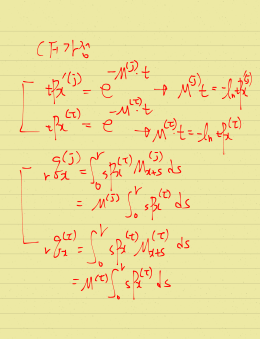 (CF 가정)
tp'x^(j) = e^-μ^(j)·t → μ^(j)t = -ln tp'x^(j)
tpx^(τ) = e^-μ^(τ)·t → μ^(τ)t = -ln tpx^(τ)
rqx^(j) = ∫0^r spx^(τ) μx+s^(j) ds
= μ^(j) ∫0^r spx^(τ) ds
rqx^(τ) = ∫0^r spx^(τ) μx+s^(τ) ds
= μ^(τ) ∫0^r spx^(τ) ds